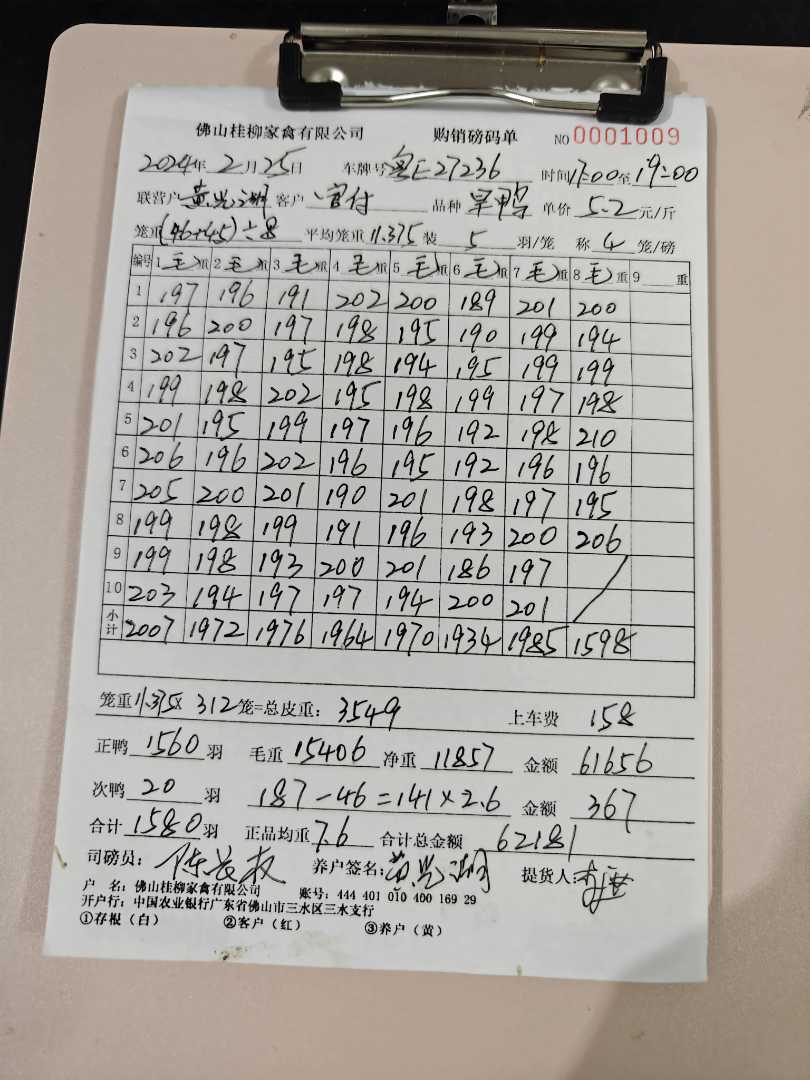 佛山桂柳家禽有限公司 购销磅码单 NO 0001009
2024年 2月 25日 车牌号 粤E27236 时间 17:00 至 19:00
联营户 黄光湖 客户 官付 品种 旱鸭 单价 5.2 元/斤
笼重 (46+45)÷8 平均笼重 11.375 装 5 羽/笼 称 4 笼/磅
编号 1 毛 重 2 毛 重 3 毛 重 4 毛 重 5 毛 重 6 毛 重 7 毛 重 8 毛 重 9 重
1 197 196 191 202 200 189 201 200
2 196 200 197 198 195 190 199 194
3 202 197 195 198 194 195 199 199
4 199 198 202 195 198 199 197 198
5 201 195 199 197 196 192 198 210
6 206 196 202 196 195 192 196 196
7 205 200 201 190 201 198 197 195
8 199 198 199 191 196 193 200 206
9 199 198 193 200 201 186 197
10 203 194 197 197 194 200 201
小计 2007 1972 1976 1964 1970 1934 1985 1598
笼重 11.375 x 312 笼=总皮重: 3549 上车费 158
正鸭 1560 羽 毛重 15406 净重 11857 金额 61656
次鸭 20 羽 187-46=141×2.6 金额 367
合计 1580 羽 正品均重 7.6 合计总金额 62181
司磅员: 养户签名: 提货人:
户 名: 佛山桂柳家禽有限公司 账号: 444 401 010 400 169 29
开户行: 中国农业银行广东省佛山市三水区三水支行
①存根（白） ②客户（红） ③养户（黄）